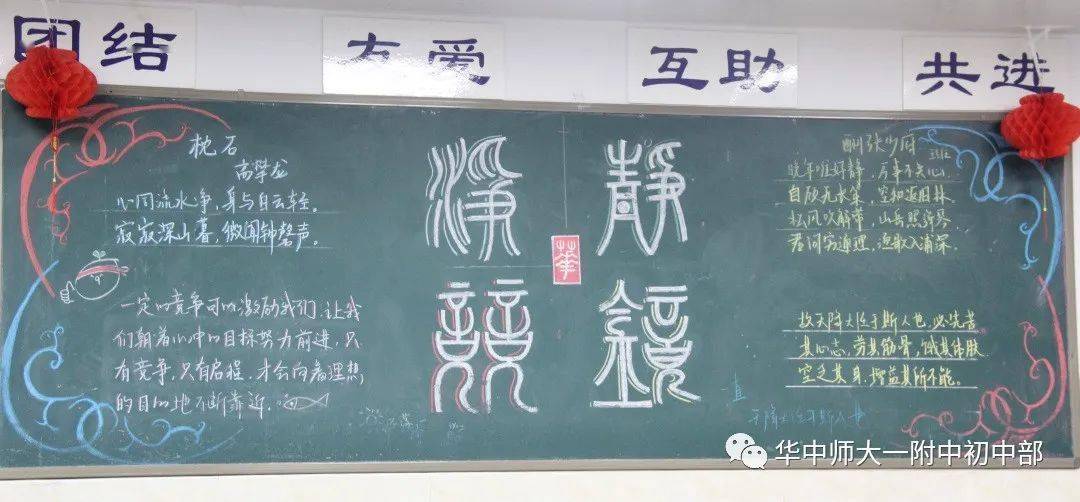 团结 友爱 互助 共进
枕石
高攀龙
心同流水净，身与白云轻。
寂寂深山暮，微闻钟磬声。
一定的竞争可以激励我们，让我
们朝着心中的目标努力前进，只
有竞争，只有启程，才会向着理想
的目的地不断靠近。
淨 靜
競 鏡
華
酬张少府
王维
晚年唯好静，万事不关心。
自顾无长策，空知返旧林。
松风吹解带，山月照弹琴。
君问穷通理，渔歌入浦深。
故天降大任于斯人也，必先苦
其心志，劳其筋骨，饿其体肤
空乏其身，增益其所不能。
直
天降大任于斯人也
华中师大一附中初中部